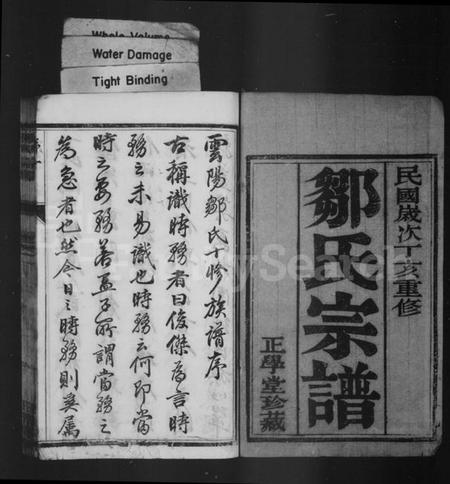 Whole Volume
Water Damage
Tight Binding
民國歲次丁亥重修
鄒氏宗譜
正學堂珍藏
雲陽鄒氏十修族譜序
古稱識時務者曰俊傑為言時
務之未易識也時務云何即當
時之要務若孟子所謂當務之
為急者也然今日之時務則奚屬